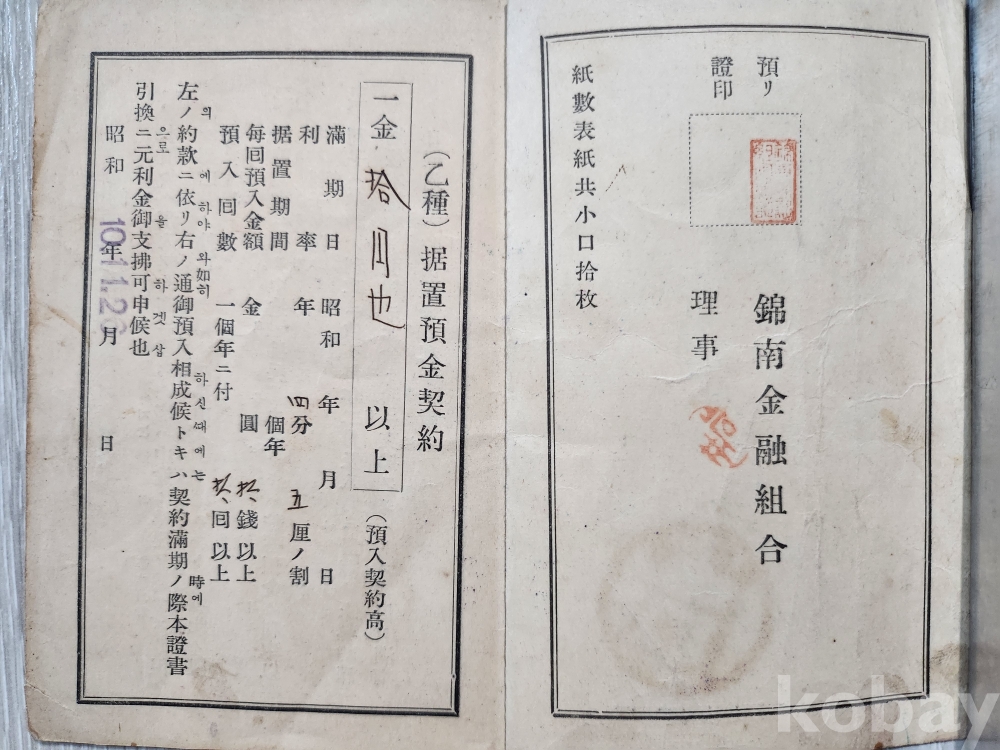 預リ
證印
錦南金融組合
理事
紙數表紙共小口拾枚
(乙種)据置預金契約
一金 拾円也 以上 (預入契約高)
滿期日 昭和 年 月 日
利率 年 四分 五厘ノ割
据置期間 個年
每回預入金額 金 圓 錢以上
預入回數 一個年ニ付 回以上
左ノ約款ニ依リ右ノ通御預入相成候トキハ契約滿期ノ際本證書
의 에하야 와如히 하신때에는 時에
引換ニ元利金御支拂可申候也
으로 을 하겟삽
昭和 年 月 日
10.11.2
kobay